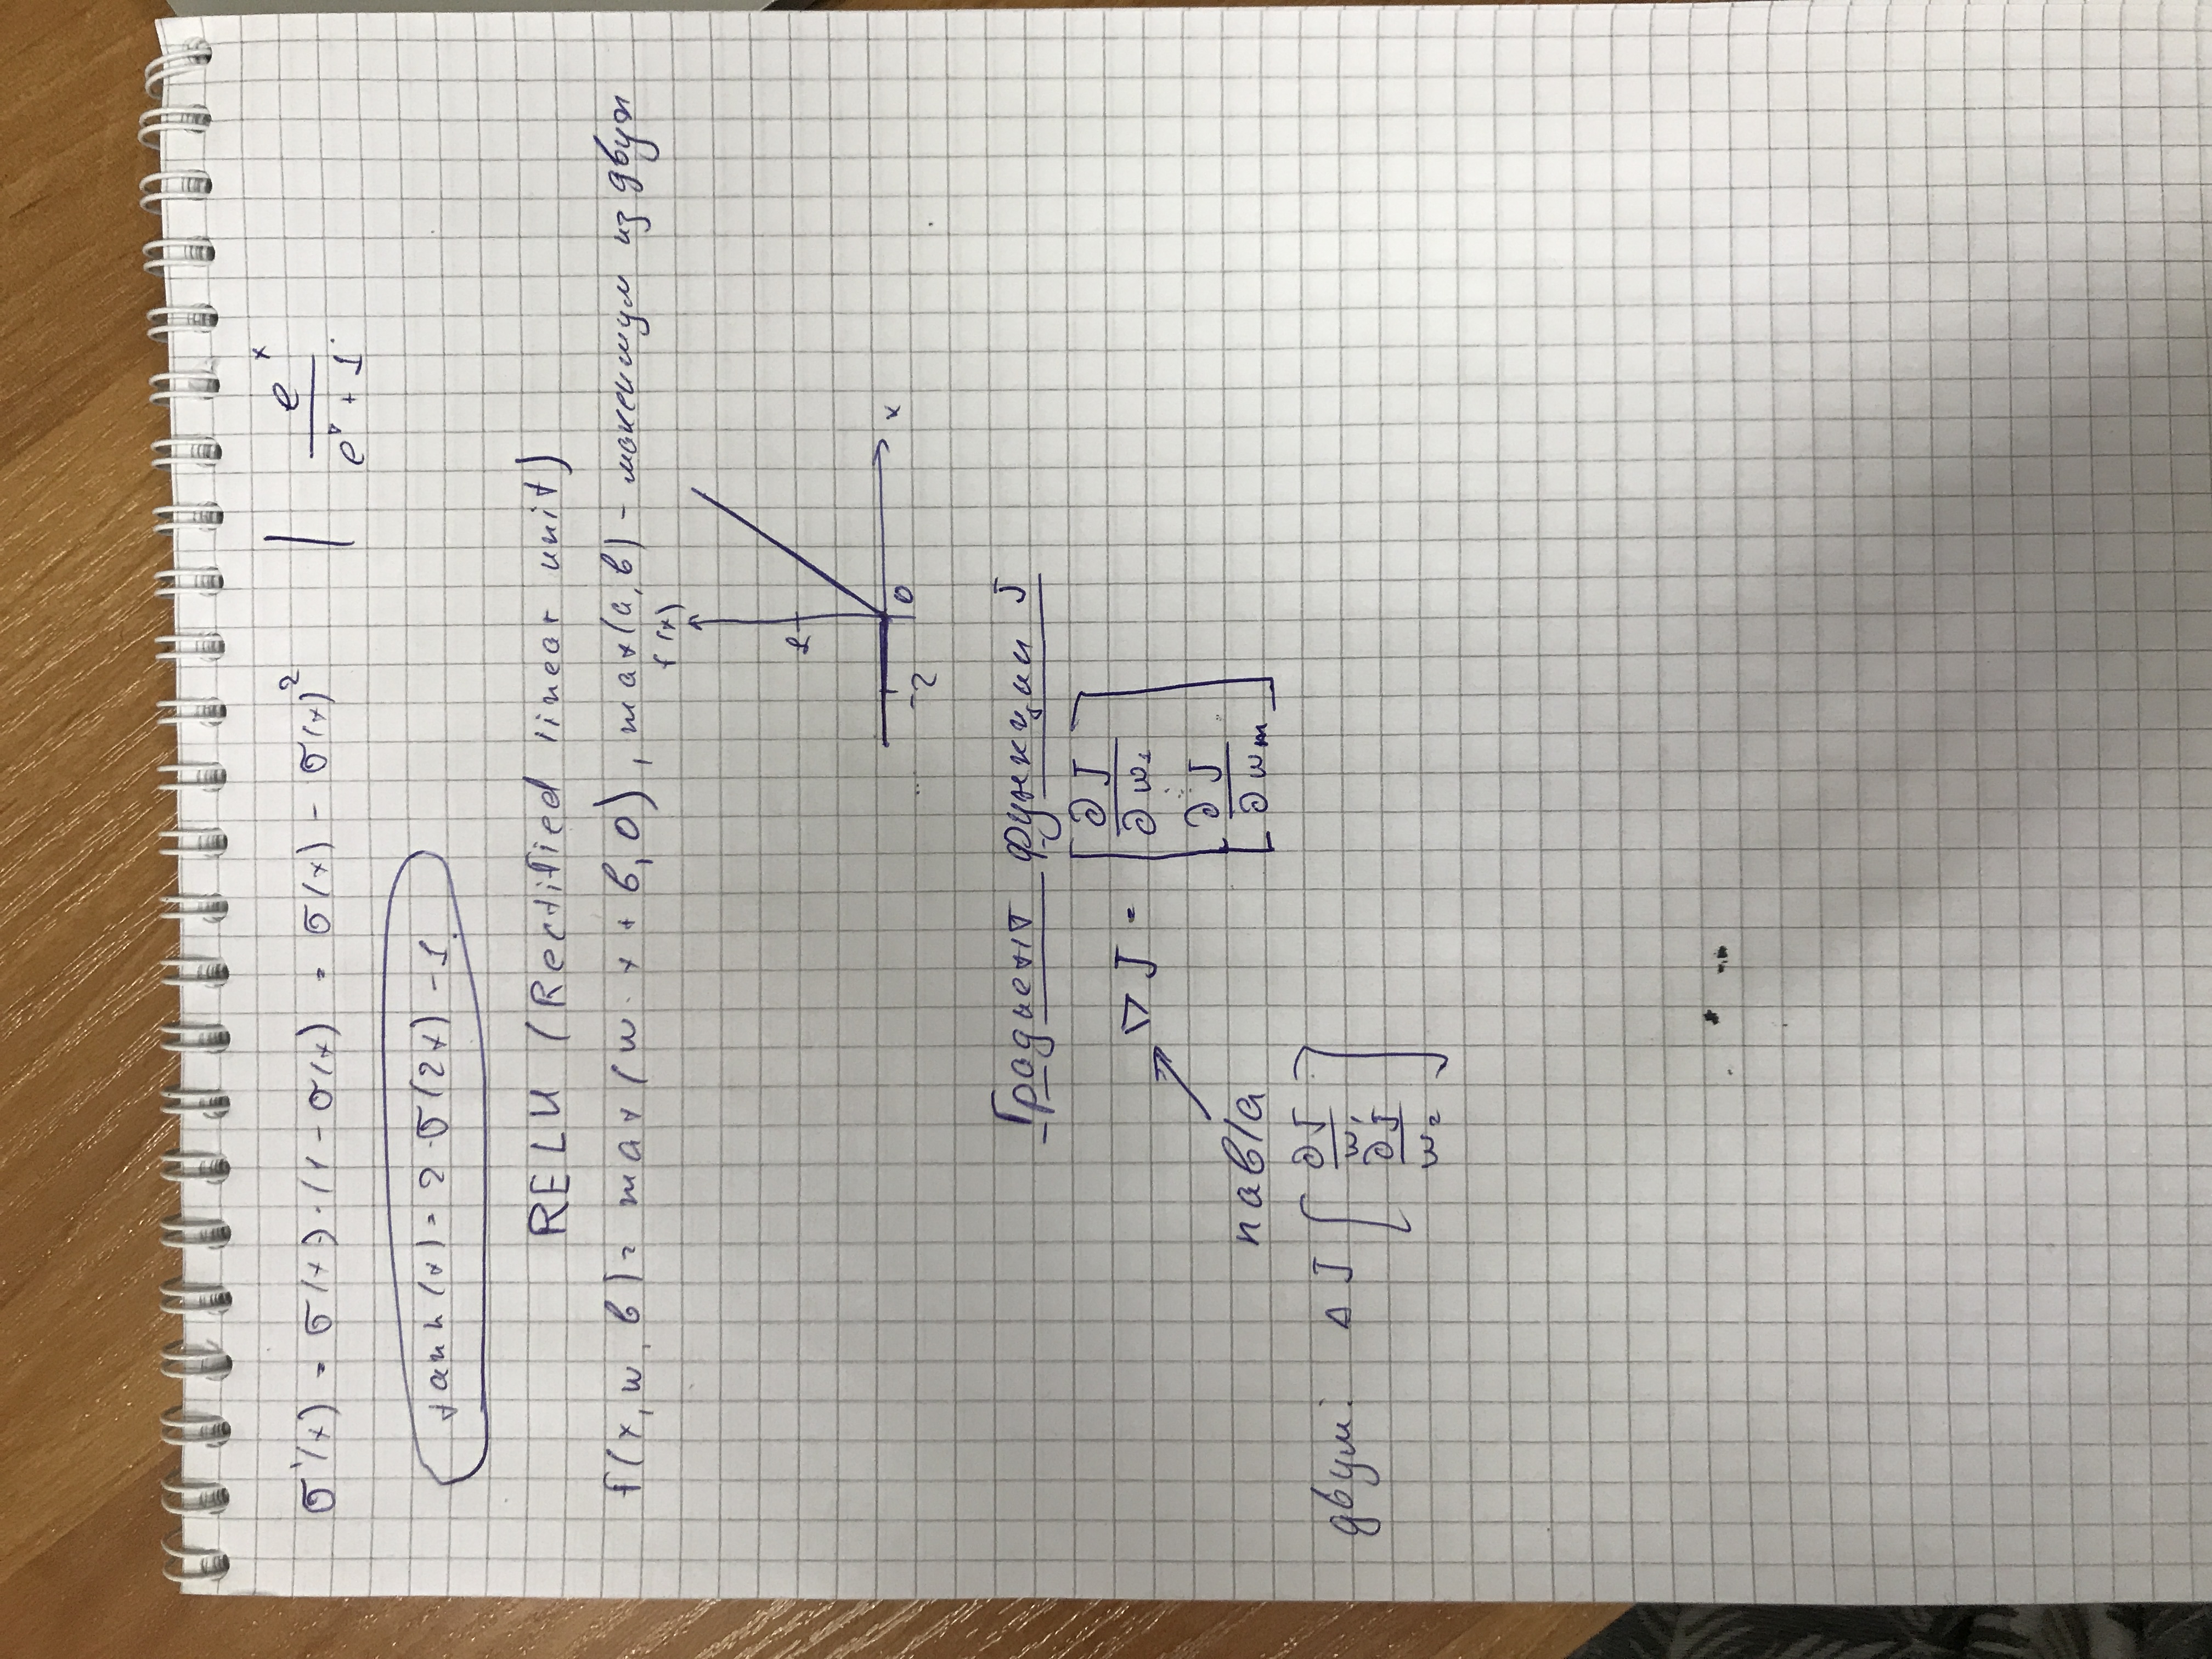 σ'(x) = σ(x)·(1-σ(x) = σ(x) - σ(x)² | e^x / e^x + 1
tanh(x) = 2·σ(2x) - 1
RELU (Rectified linear unit)
f(x, w, b) = max(w·x + b, 0), max(a, b) - максимум из двух
f(x)
1
-2 0 x
Градиент функции J
∇J = [∂J/∂w₁ ... ∂J/∂wₘ]
nabla
двум: ΔJ [∂J/w₁ ∂J/w₂]